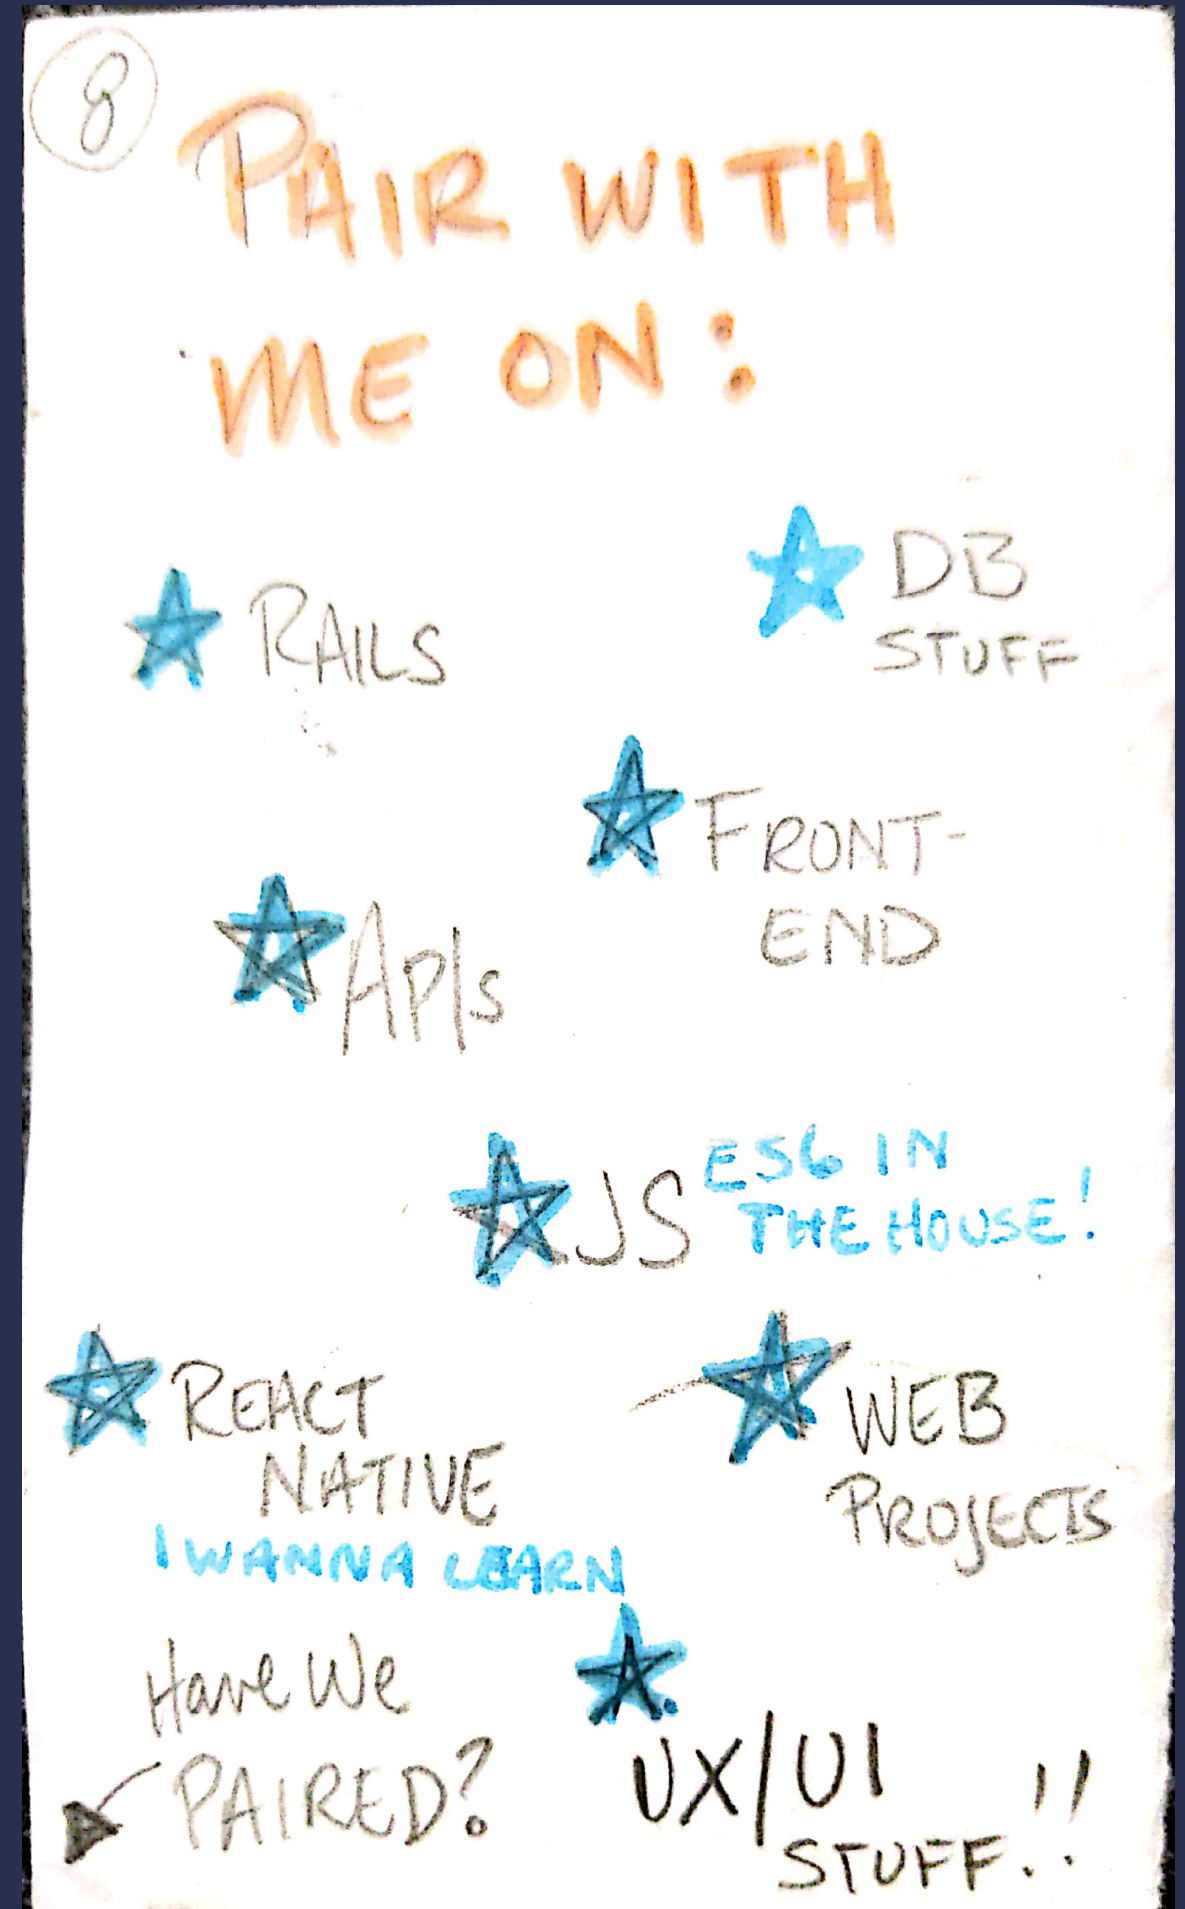 8
PAIR WITH
ME ON:
RAILS
DB
STUFF
FRONT-
END
APIs
JS
ES6 IN
THE HOUSE!
REACT
NATIVE
I WANNA LEARN
WEB
PROJECTS
Have We
PAIRED?
UX/UI
STUFF..!!